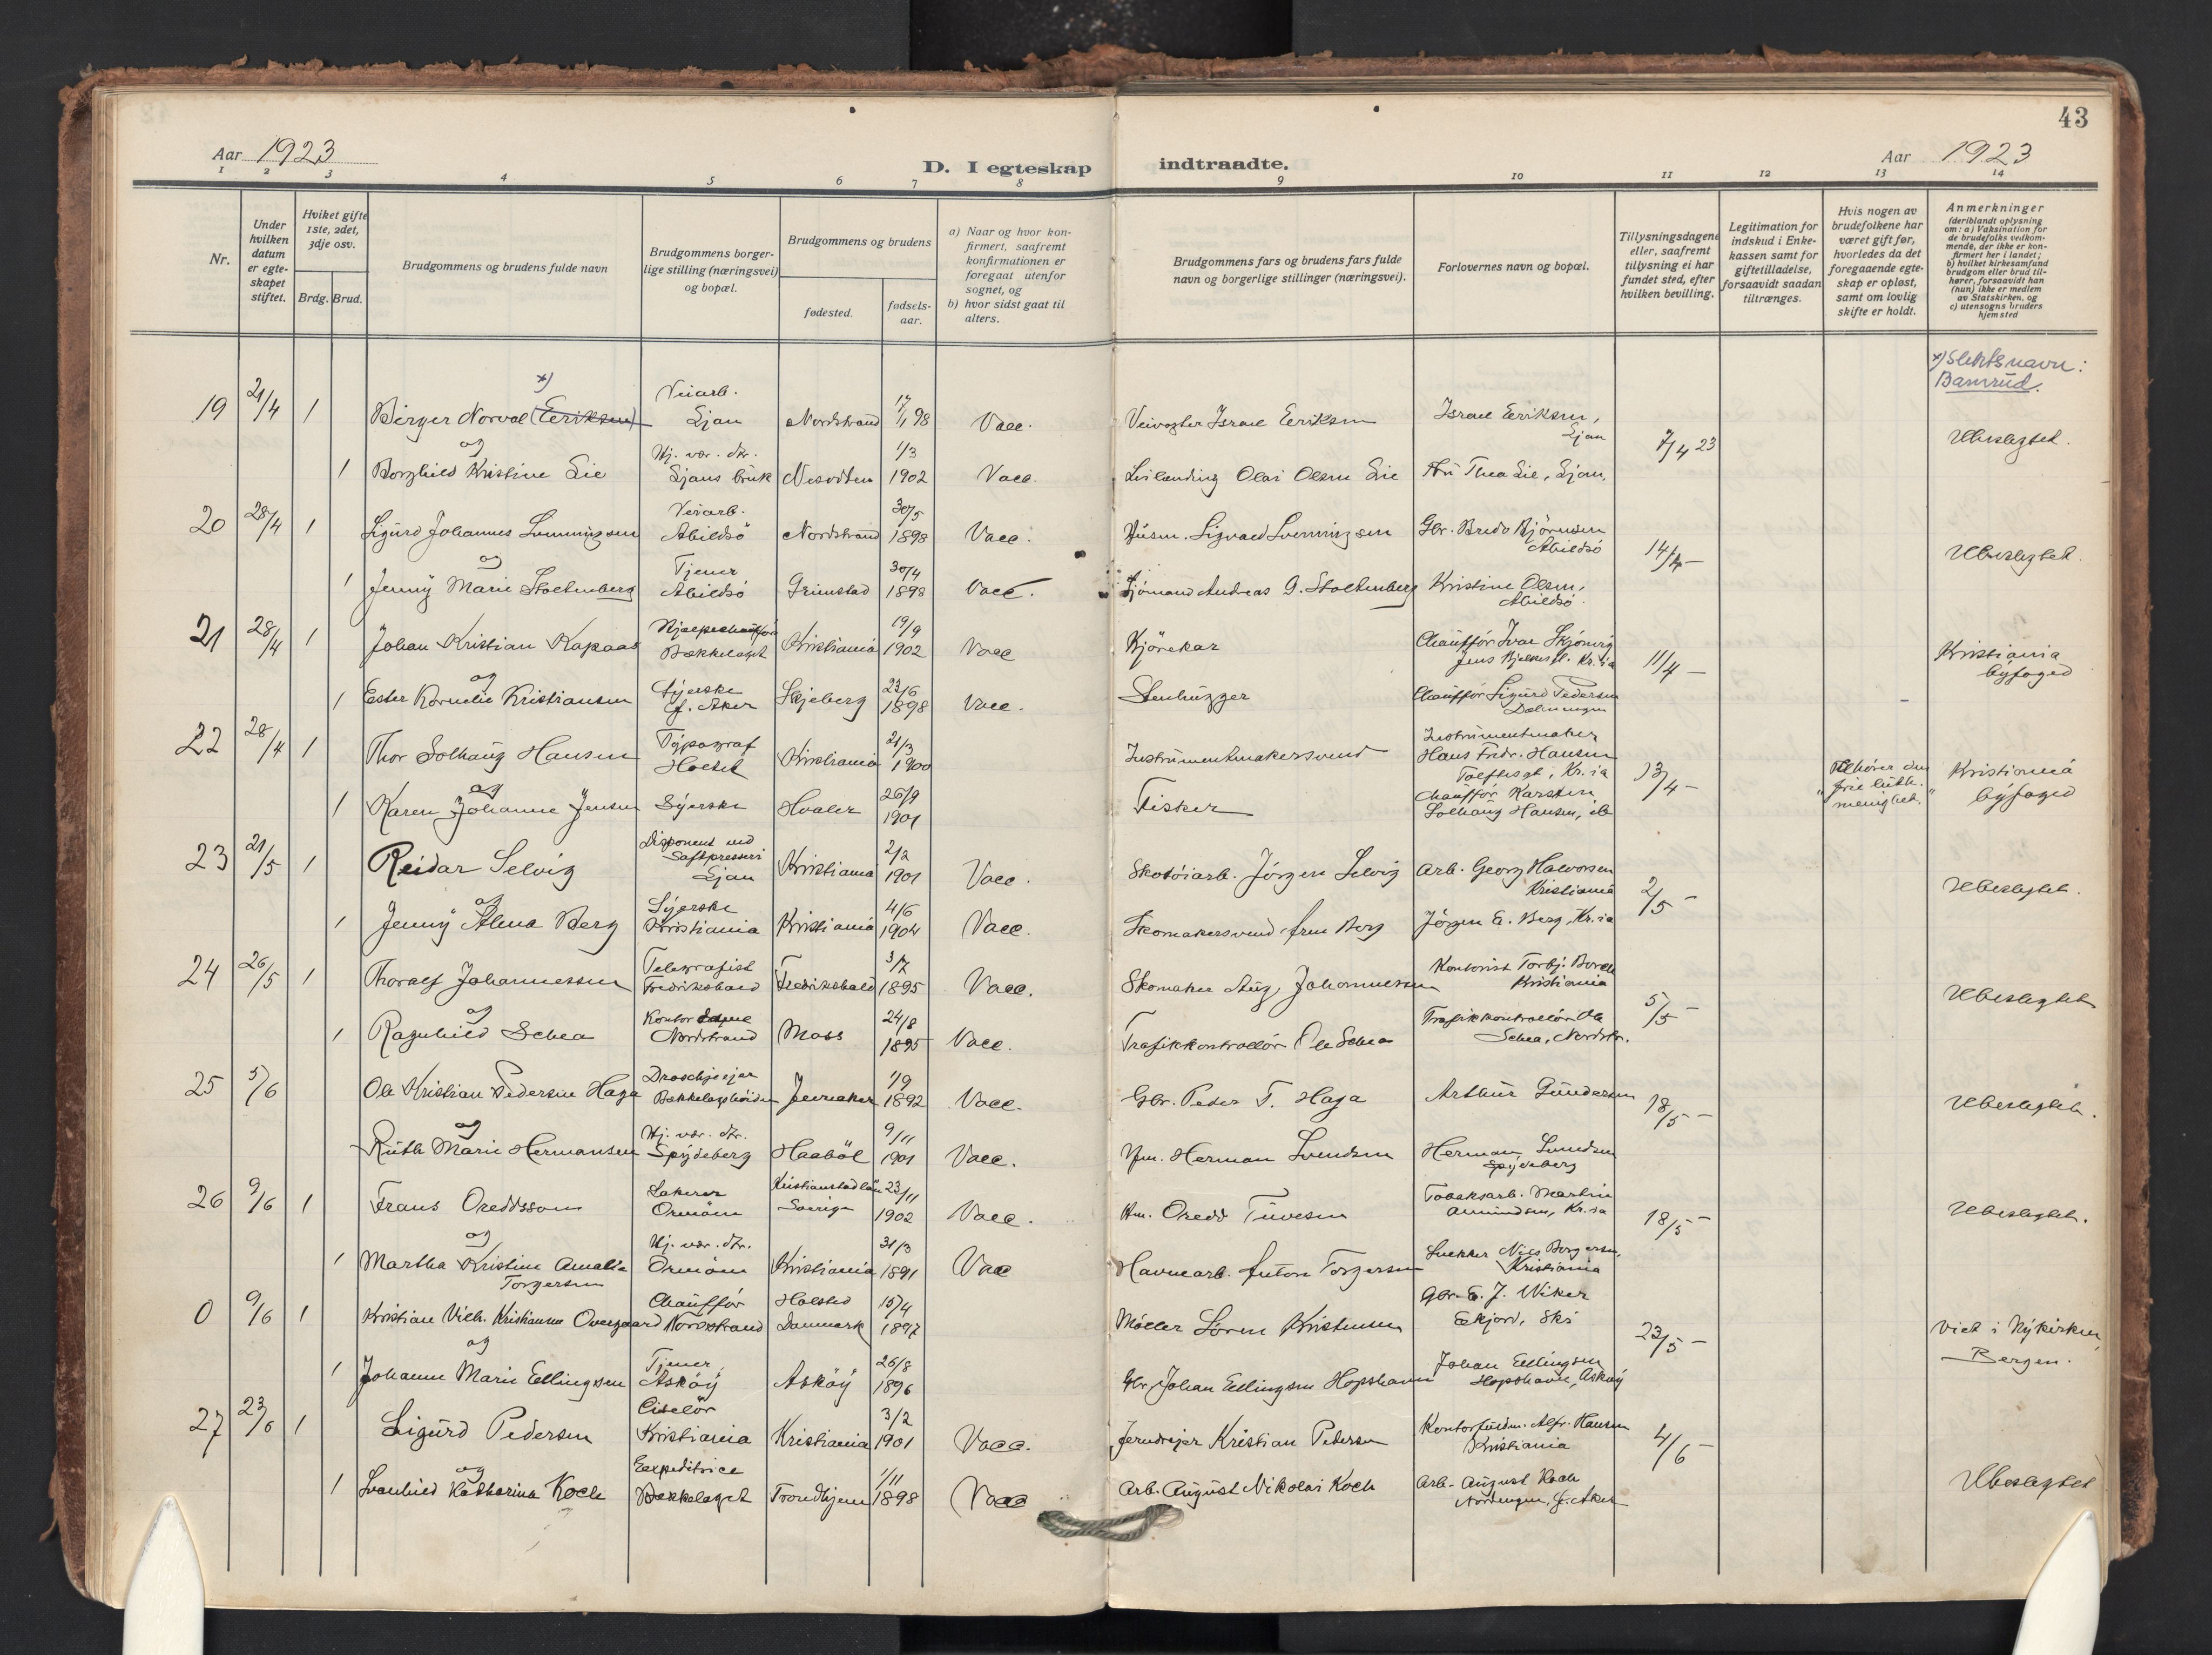 43
Aar 1923
D. I egteskap indtraadte.
Aar 1923
1 2 3 4 5 6 7 8 9 10 11 12 13 14
Nr.
Under hvilken datum er egteskapet stiftet.
Hviket gifte 1ste, 2det, 3dje osv.
Brdg. Brud.
Brudgommens og brudens fulde navn
Brudgommens borgerlige stilling (næringsvei) og bopæl.
Brudgommens og brudens
fødested.
fødselsaar.
a) Naar og hvor konfirmert, saafremt konfirmationen er foregaat utenfor sognet, og
b) hvor sidst gaat til alters.
Brudgommens fars og brudens fars fulde navn og borgerlige stillinger (næringsvei).
Forlovernes navn og bopæl.
Tillysningsdagene eller, saafremt tillysning ei har fundet sted, efter hvilken bevilling.
Legitimation for indskud i Enkekassen samt for giftetilladelse, forsaavidt saadan tiltrænges.
Hvis nogen av brudefolkene har været gift før, hvorledes da det foregaaende egteskap er opløst, samt om lovlig skifte er holdt.
Anmerkninger
(deriblandt oplysning om: a) Vaksination for de brudefolks vedkommende, der ikke er konfirmert her i landet; b) hvilket kirkesamfund brudgom eller brud tilhører, forsaavidt han (hun) ikke er medlem av Statskirken, og c) utensogns bruders hjemsted
x) Slektsnavn: Bamrud.
19 21/4 1 Birger Norval (Eeriksen) x) Veiarb. Ljan Nordstrand 17/1 98 Vacc. Veivogter Israel Eeriksen Israel Eeriksen, Ljan 7/4 23 Ubeslegtet.
og
1 Borghild Kristine Lie Hj. vær. dtr. Ljans bruk Nesodden 1/3 1902 Vacc. Leilænding Olai Olsen Lie Fru Thea Lie, Ljan.
20 28/4 1 Sigurd Johannes Svenningsen Veiarb. Abildsö Nordstrand 30/5 1898 Vacc. Husm. Sigvald Svenningsen Gbr. Bredo Björnsen Abildsö 14/4 - Ubeslegtet.
og
1 Jenny Marie Stoltenberg Tjener Abildsö Grimstad 30/4 1898 Vacc. Sjömand Andreas G. Stoltenberg Kristine Olsen, Abildsö.
21 28/4 1 Johan Kristian Kapaas Hjælpechauffør Bækkelaget Kristiania 19/9 1902 Vacc Kjörekar Chauffør Ivar Jens Bjelkesg. Kr.ia 11/4 - Kristiania byfoged
og
1 Ester Kornelie Kristiansen Syerske Ö. Aker Skjeberg 23/6 1898 Vacc. Stenhugger Chauffør Sigurd Pedersen Dælenengen
22 28/4 1 Thor Solhaug Hansen Typograf Holtet Kristiania 21/3 1900 Instrumentmakersvend Instrumentmaker Hans Fredr. Hansen Toftesgt, Kr.ia 13/4 - Tilhører den "frie luth. menighet." Kristiania byfoged
og
1 Karen Johanne Jensen Syerske Hvaler 26/9 1901 Fisker Chauffør Karsten Solhaug Hansen, ib
23 21/5 1 Reidar Selvig Disponent ved Saftpresseri Ljan Kristiania 2/2 1901 Vacc. Skotöiarb. Jörgen Selvig Arb. Georg Halvorsen Kristiania 2/5 - Ubeslegtet.
og
1 Jenny Alma Berg Syerske Kristiania Kristiania 4/6 1904 Vacc. Skomakersvend Berg Jörgen E. Berg, Kr.ia
24 26/5 1 Thoralf Johannessen Telegrafist Fredrikshald Fredrikshald 3/7 1895 Vacc. Skomaker Aug. Johannessen Kontorist Torbj. Borch Kristiania 5/5 - Ubeslegtet
og
1 Ragnhild Schea Kontordame Nordstrand Moss 24/8 1895 Vacc. Trafikkontrollör Ole Schea Trafikkontrollör Ole Schea, Nordstr.
25 5/6 Ole Kristian Pedersen Haga Droschjeeier Bækkelagshöiden Jevnaker 1/9 1892 Vacc. Gbr. Peder T. Haga Arthur Gundersen 18/5 - Ubeslegtet.
og
Ruth Marie Hermansen Hj. vær. dtr. Spydeberg Haaböl 9/11 1901 Vacc. Herman Svendsen Herman Svendsen Spydeberg
26 9/6 1 Frans Oreddsson Lakerer Ormöen Kristianstad län Sverige 23/11 1902 Vacc. Oredd Tuvesen Tobaksarb. Martin Amundsen, Kr.ia 18/5 - Ubeslegtet.
og
1 Martha Kristine Amalie Torgersen Hj. vær. dtr. Ormöen Kristiania 31/3 1891 Vacc Havnearb. Anton Torgersen Snekker Nils Borgersen, Kristiania
0 9/6 1 Kristian Vilh. Kristiansen Overgaard Chauffør Nordstrand Holsted Danmark 15/4 1897 Möller Sören Kristensen Gbr. E. J. Wiker Eekjord, Ski 23/5 - Viet i Nykirken, Bergen.
og
1 Johanne Marie Ellingsen Tjener, Asköy Asköy 26/8 1896 Gbr. Johan Ellingsen Hopshavn Johan Ellingsen Hopshavn, Asköy
27 23/6 1 Sigurd Pedersen Ciselör Kristiania Kristiania 3/2 1901 Vacc. Jerndreier Kristian Pedersen Kontorfuldm. Alfr. Hansen Kristiania 4/6 - Ubeslegtet
og
1 Svanhild Katharina Koch Eexpeditrice Bækkelaget Trondhjem 1/11 1898 Vacc Arb. August Nikolai Koch Arb. August Koch Nordengen, Ö. Aker